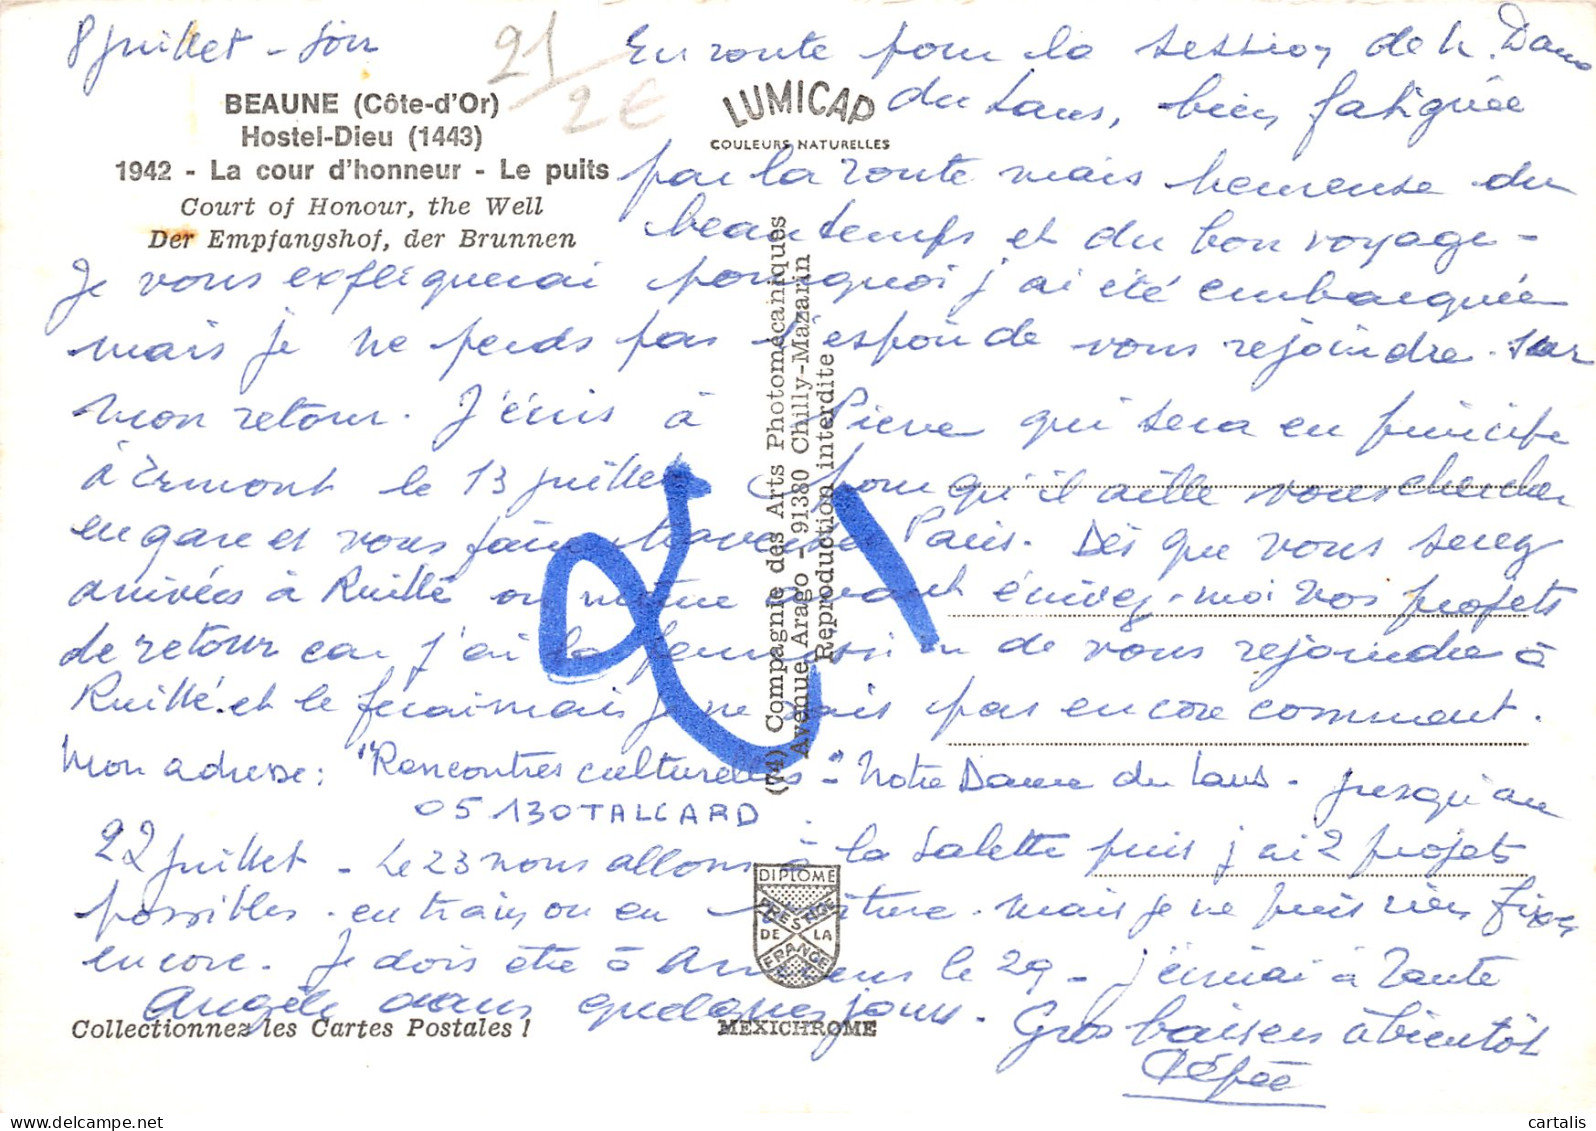 8 juillet - soir
21
2€
En route pour la session de N. Dame
du Laus, bien fatiguée
par la route mais heureuse du
beau temps et du bon voyage -
BEAUNE (Côte-d'Or)
Hostel-Dieu (1443)
1942 - La cour d'honneur - Le puits
Court of Honour, the Well
Der Empfangshof, der Brunnen
LUMICAP
COULEURS NATURELLES
Je vous expliquerai pourquoi j'ai été embarquée
mais je ne perds pas l'espoir de vous rejoindre sur
mon retour. J'écris à Pierre qui sera en principe
à Ermont le 13 juillet pour qu'il aille vous chercher
en gare et vous faire traverser Paris. Dès que vous serez
arrivées à Ruillé ou même avant écrivez-moi vos projets
de retour car j'ai la permission de vous rejoindre à
Ruillé et le ferai mais je ne sais pas encore comment.
Mon adresse : "Rencontres culturelles" - Notre Dame du Laus - jusqu'au
05130 TALLARD
22 juillet - Le 23 nous allons à la Salette puis j'ai 2 projets
possibles - en train ou en voiture - mais je ne puis rien fixer
encore. Je dois être à Amiens le 29 - j'écrirai à Tante
Angèle dans quelques jours. Gros baisers à bientôt
(74) Compagnie des Arts Photomécaniques
Avenue Arago - 91380 Chilly-Mazarin
Reproduction interdite
DIPLOME
PRESTIGE
DE LA
FRANCE
MEXICHROME
Collectionnez les Cartes Postales !
cartalis